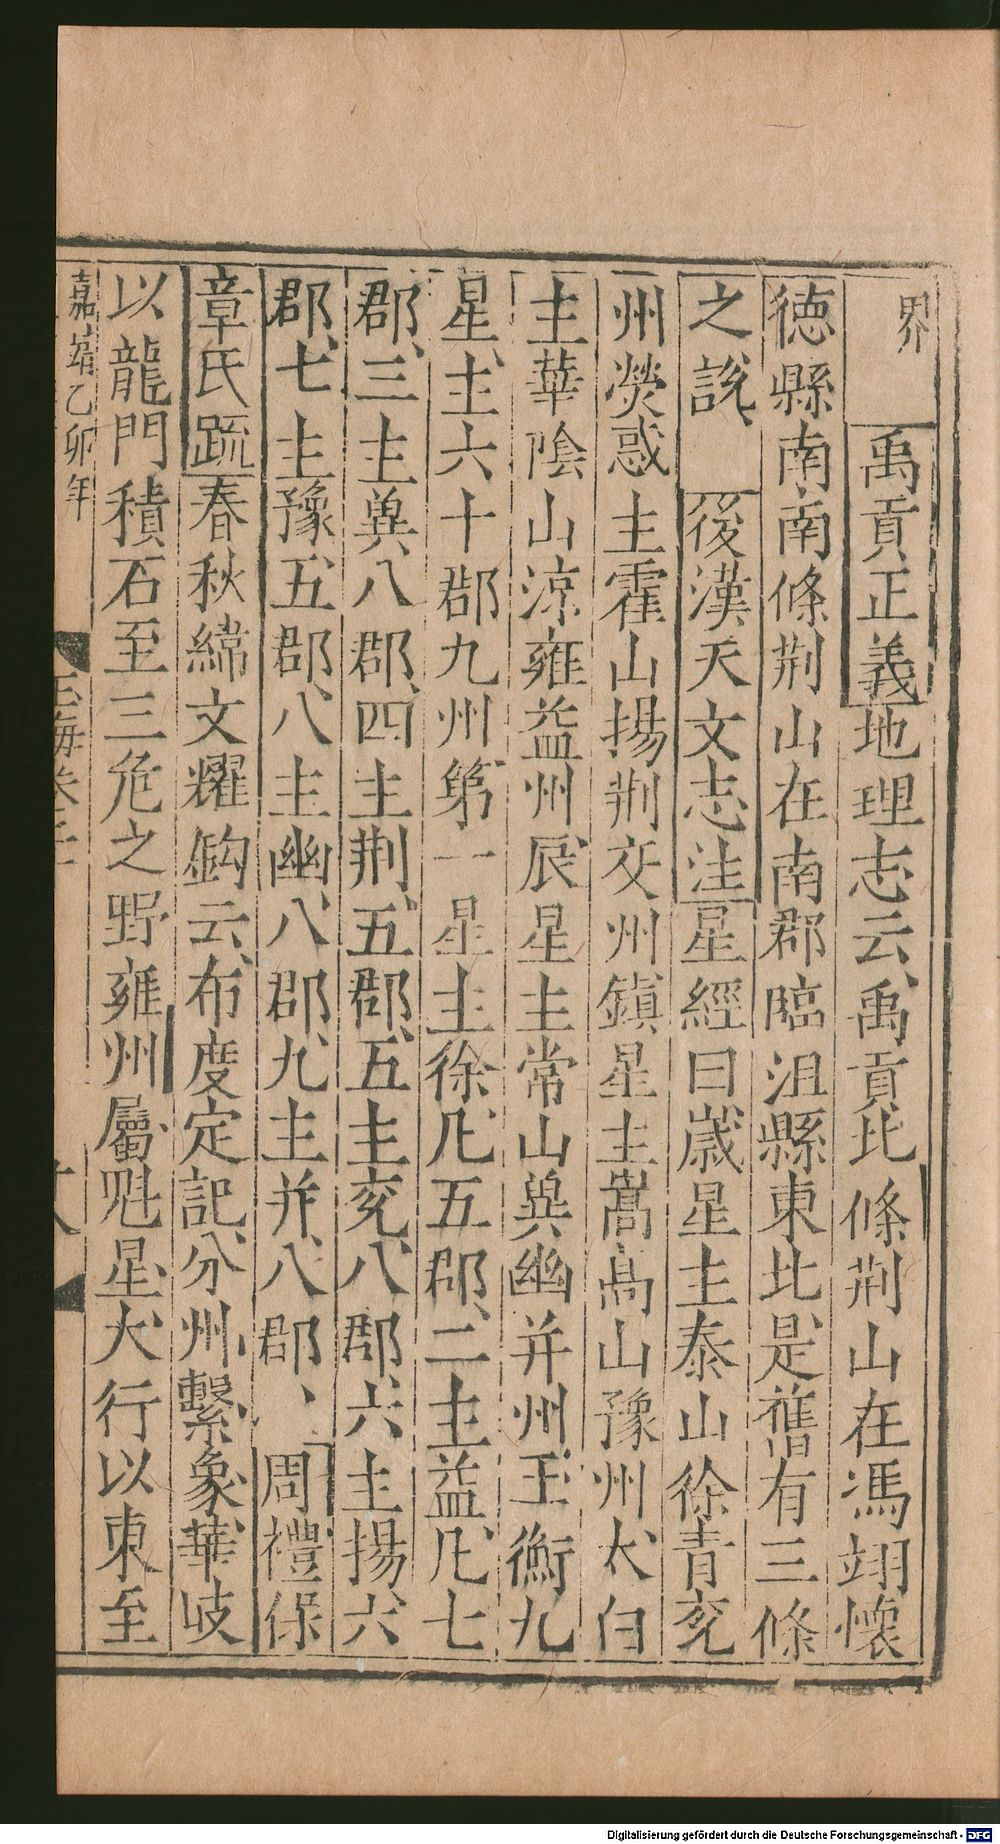 界 禹貢正義地理志云禹貢北條荆山在馮翊懷
德縣南南條荆山在南郡臨沮縣東北是舊有三條
之說 後漢天文志注星經曰歲星主泰山徐青兖
州熒惑主霍山揚荆交州鎮星主嵩高山豫州太白
主華陰山涼雍益州辰星主常山兾幽并州玉衡九
星主六十郡九州第一星主徐凡五郡二主益凡七
郡三主兾八郡四主荆五郡五主兖八郡六主揚六
郡七主豫五郡八主幽八郡九主并八郡 周禮保
章氏疏春秋緯文耀鈎云布度定記分州繫象華岐
以龍門積石至三危之野雍州屬魁星大行以東至
嘉靖乙卯年
玉海卷二
Digitalisierung gefördert durch die Deutsche Forschungsgemeinschaft - DFG